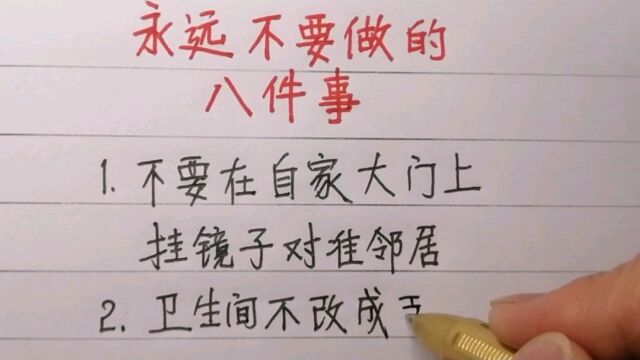 永远不要做的
八件事
1. 不要在自家大门上
挂镜子对准邻居
2. 卫生间不改成